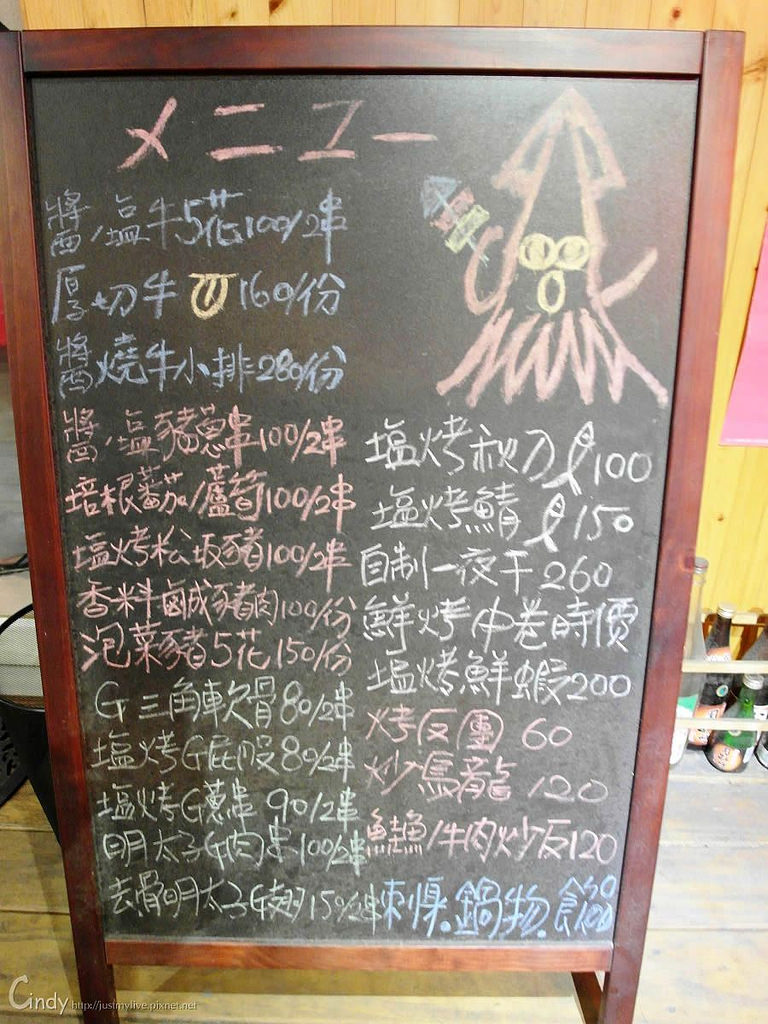 メニュー
醬/塩牛5花100/2串
厚切牛 160/份
醬燒牛小排280/份
醬/塩豬蔥串100/2串
培根蕃茄/蘆筍100/2串
塩烤松坂豬100/2串
香料鹹豬肉100/份
泡菜豬5花150/份
G三角軟骨80/2串
塩烤G屁股80/2串
塩烤G蔥串90/2串
明太子G肉串100/2串
去骨明太子G翅150/2串
塩烤秋刀 100
塩烤鯖 150
自制一夜干260
鮮烤中卷時價
塩烤鮮蝦200
烤反團 60
炒烏龍 120
鮭魚/牛肉炒反120
刺身.鍋物.
Cindy http://justmylive.pixnet.net